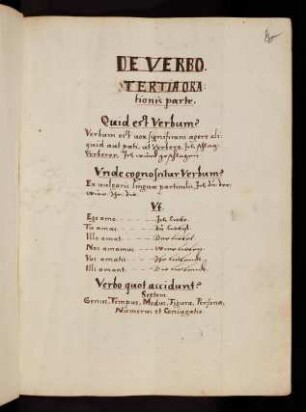 DE VERBO.
TERTIA ORA-
tionis parte.
Quid est Verbum?
Verbum est vox significans agere ali-
quid aut pati, ut Verbero, Ich schlag.
Verberor, Ich
Vnde cognoscitur Verbum?
Ex vulgaris linguæ particulis, Ich, du, der,
Wir, Ihr, die.
Vt.
Ego amo Ich liebe.
Tu amas Du liebest.
Ille amat Der liebet.
Nos amamus Wir
Vos amatis Ihr
Illi amant Die
Verbo quot accidunt?
Septem.
Genus, Tempus, Modus, Figura, Persona,
Numerus et Coniugatio.